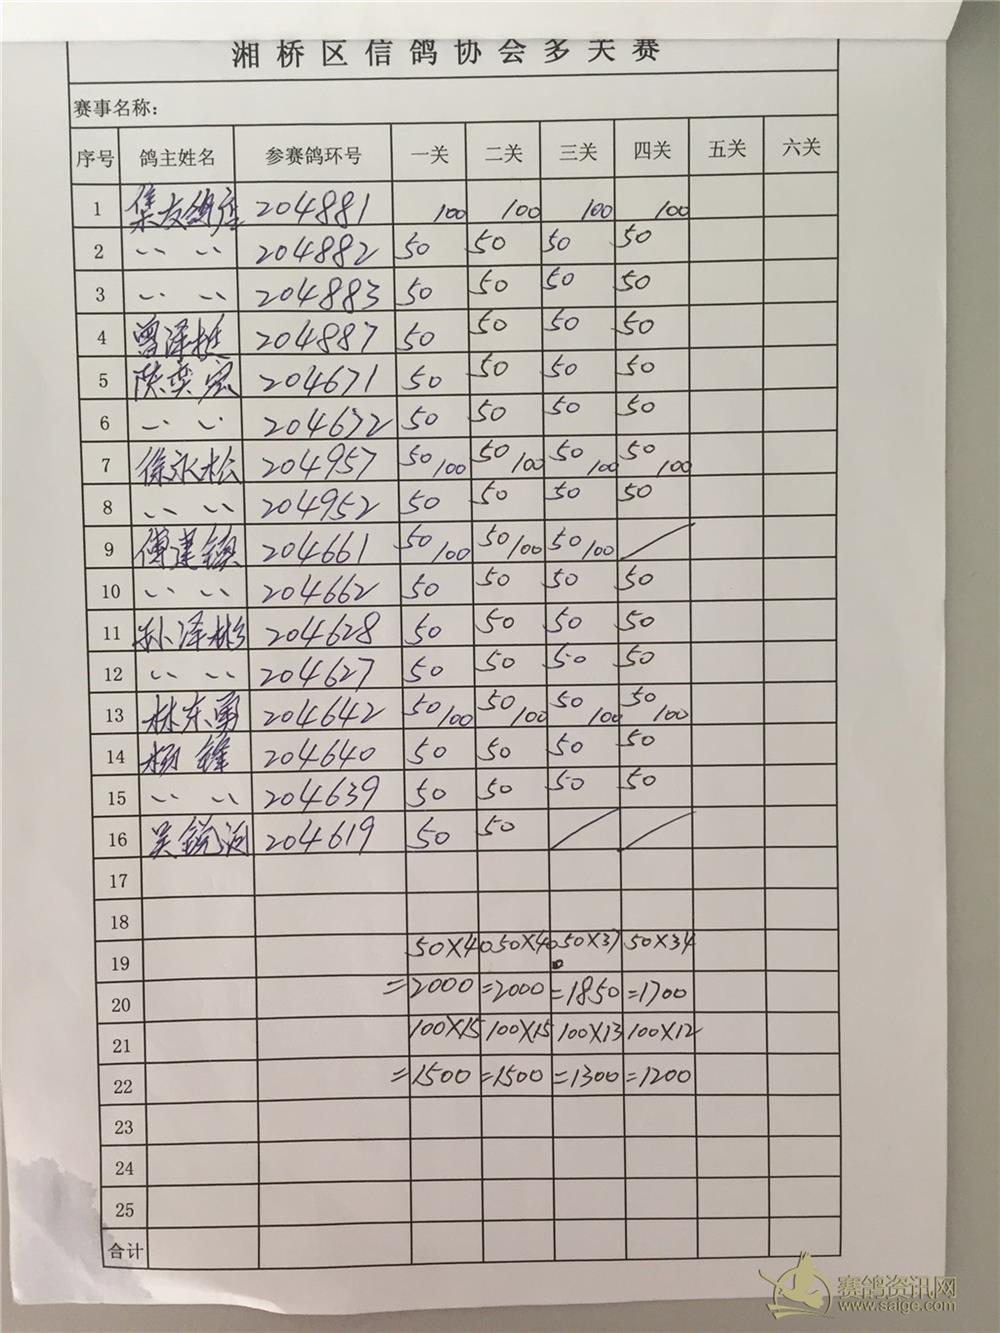 湘桥区信鸽协会多关赛
赛事名称:
序号 鸽主姓名 参赛鸽环号 一关 二关 三关 四关 五关 六关
1 集友鸽店 204881 100 100 100 100
2 〃 〃 204882 50 50 50 50
3 〃 〃 204883 50 50 50 50
4 曾泽挺 204887 50 50 50 50
5 陈奕宏 204671 50 50 50 50
6 〃 〃 204672 50 50 50 50
7 徐永松 204957 50/100 50/100 50/100 50/100
8 〃 〃 204952 50 50 50 50
9 傅建镇 204661 50/100 50/100 50/100 /
10 〃 〃 204662 50 50 50 50
11 孙泽彬 204628 50 50 50 50
12 〃 〃 204627 50 50 50 50
13 林东勇 204642 50/100 50/100 50/100 50/100
14 杨锋 204640 50 50 50 50
15 〃 〃 204639 50 50 50 50
16 吴锐 204619 50 50 / /
17
18
19 50×40 50×40 50×37 50×34
20 =2000 =2000 =1850 =1700
21 100×15 100×15 100×13 100×12
22 =1500 =1500 =1300 =1200
23
24
25
合计
赛鸽资讯网
www.saige.com